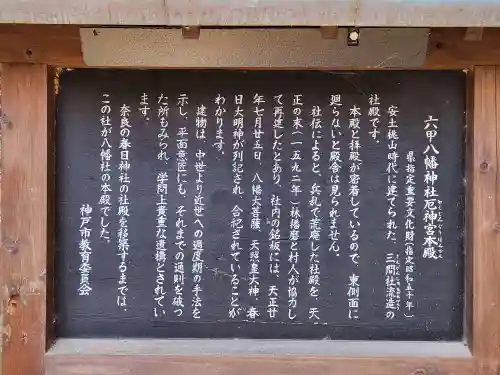 六甲八幡神社厄神宮本殿
県指定重要文化財(指定昭和五十年)
安土桃山時代に建てられた、三間社流造の
社殿です。
本殿と拝殿が密着しているので、東側面に
廻らないと殿舎は見られません。
社伝によると、兵乱で荒廃した社殿を、天
正の末(一五九二年)林播磨と村人が協力し
て再建したとあり、社内の銘板には、天正廿
年七月廿五日、八幡大菩薩、天照皇大神、春
日大明神が列記され、合祀されていることが
わかります。
建物は、中世より近世への過度期の手法を
示し、平面意匠にも、それまでの通則を破っ
た所もみられ、学問上貴重な遺構とされてい
ます。
奈良の春日神社の社殿を移築するまでは、
この社が八幡社の本殿でした。
神戸市教育委員会